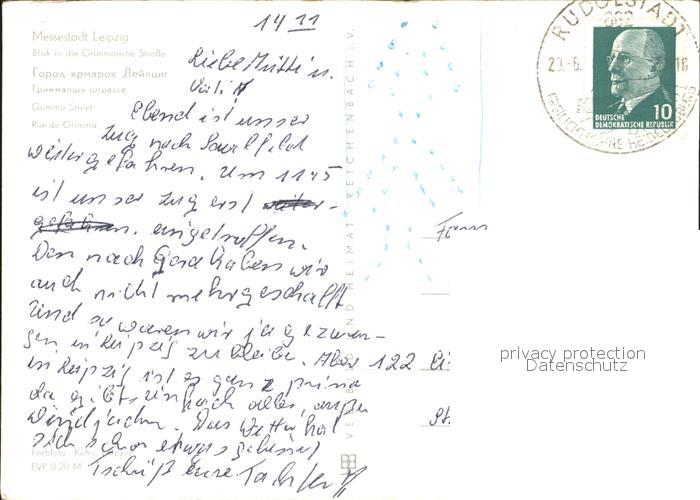 14 11
Messestadt Leipzig
Blick in die Grimmaische Straße
Город ярмарок Лейпциг
Гриммаише штрассе
Grimma Street
Rue de Grimma
Liebe Mutti u.
Vati!
Ebend ist unser
Zug nach Saalfeld
weitergefahren. Um 1145
ist unser Zug erst
eingetroffen.
Den nach Gera haben wir
auch nicht mehr geschafft
Und so waren wir ja gezwun-
gen in Leipzig zu bleibe. Aber
in Leipzig ist es ganz prima
da gibts einfach alles, außer
Windjacken. Das Wetter hat
sich schon etwas gebessert
Tschüß eure
Farbfoto: Kühn, Leipzig
EVP 0.20 M
VERLAG BILD UND HEIMAT REICHENBACH I.V.
RUDOLSTADT
682
DEUTSCHE
DEMOKRATISCHE REPUBLIK
10
122
privacy protection
Datenschutz